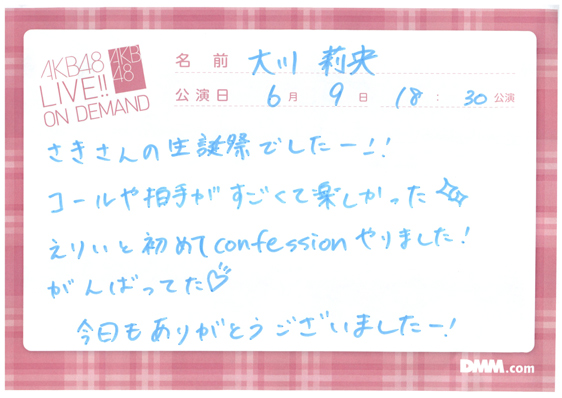 AKB48
LIVE!!
ON DEMAND
AKB
48
名前 大川 莉央
公演日 6月 9日 18:30公演
さきさんの生誕祭でしたー!!
コールや拍手がすごくて楽しかった
えりいと初めてconfessionやりました!
がんばってた♡
今日もありがとうございましたー!
DMM.com